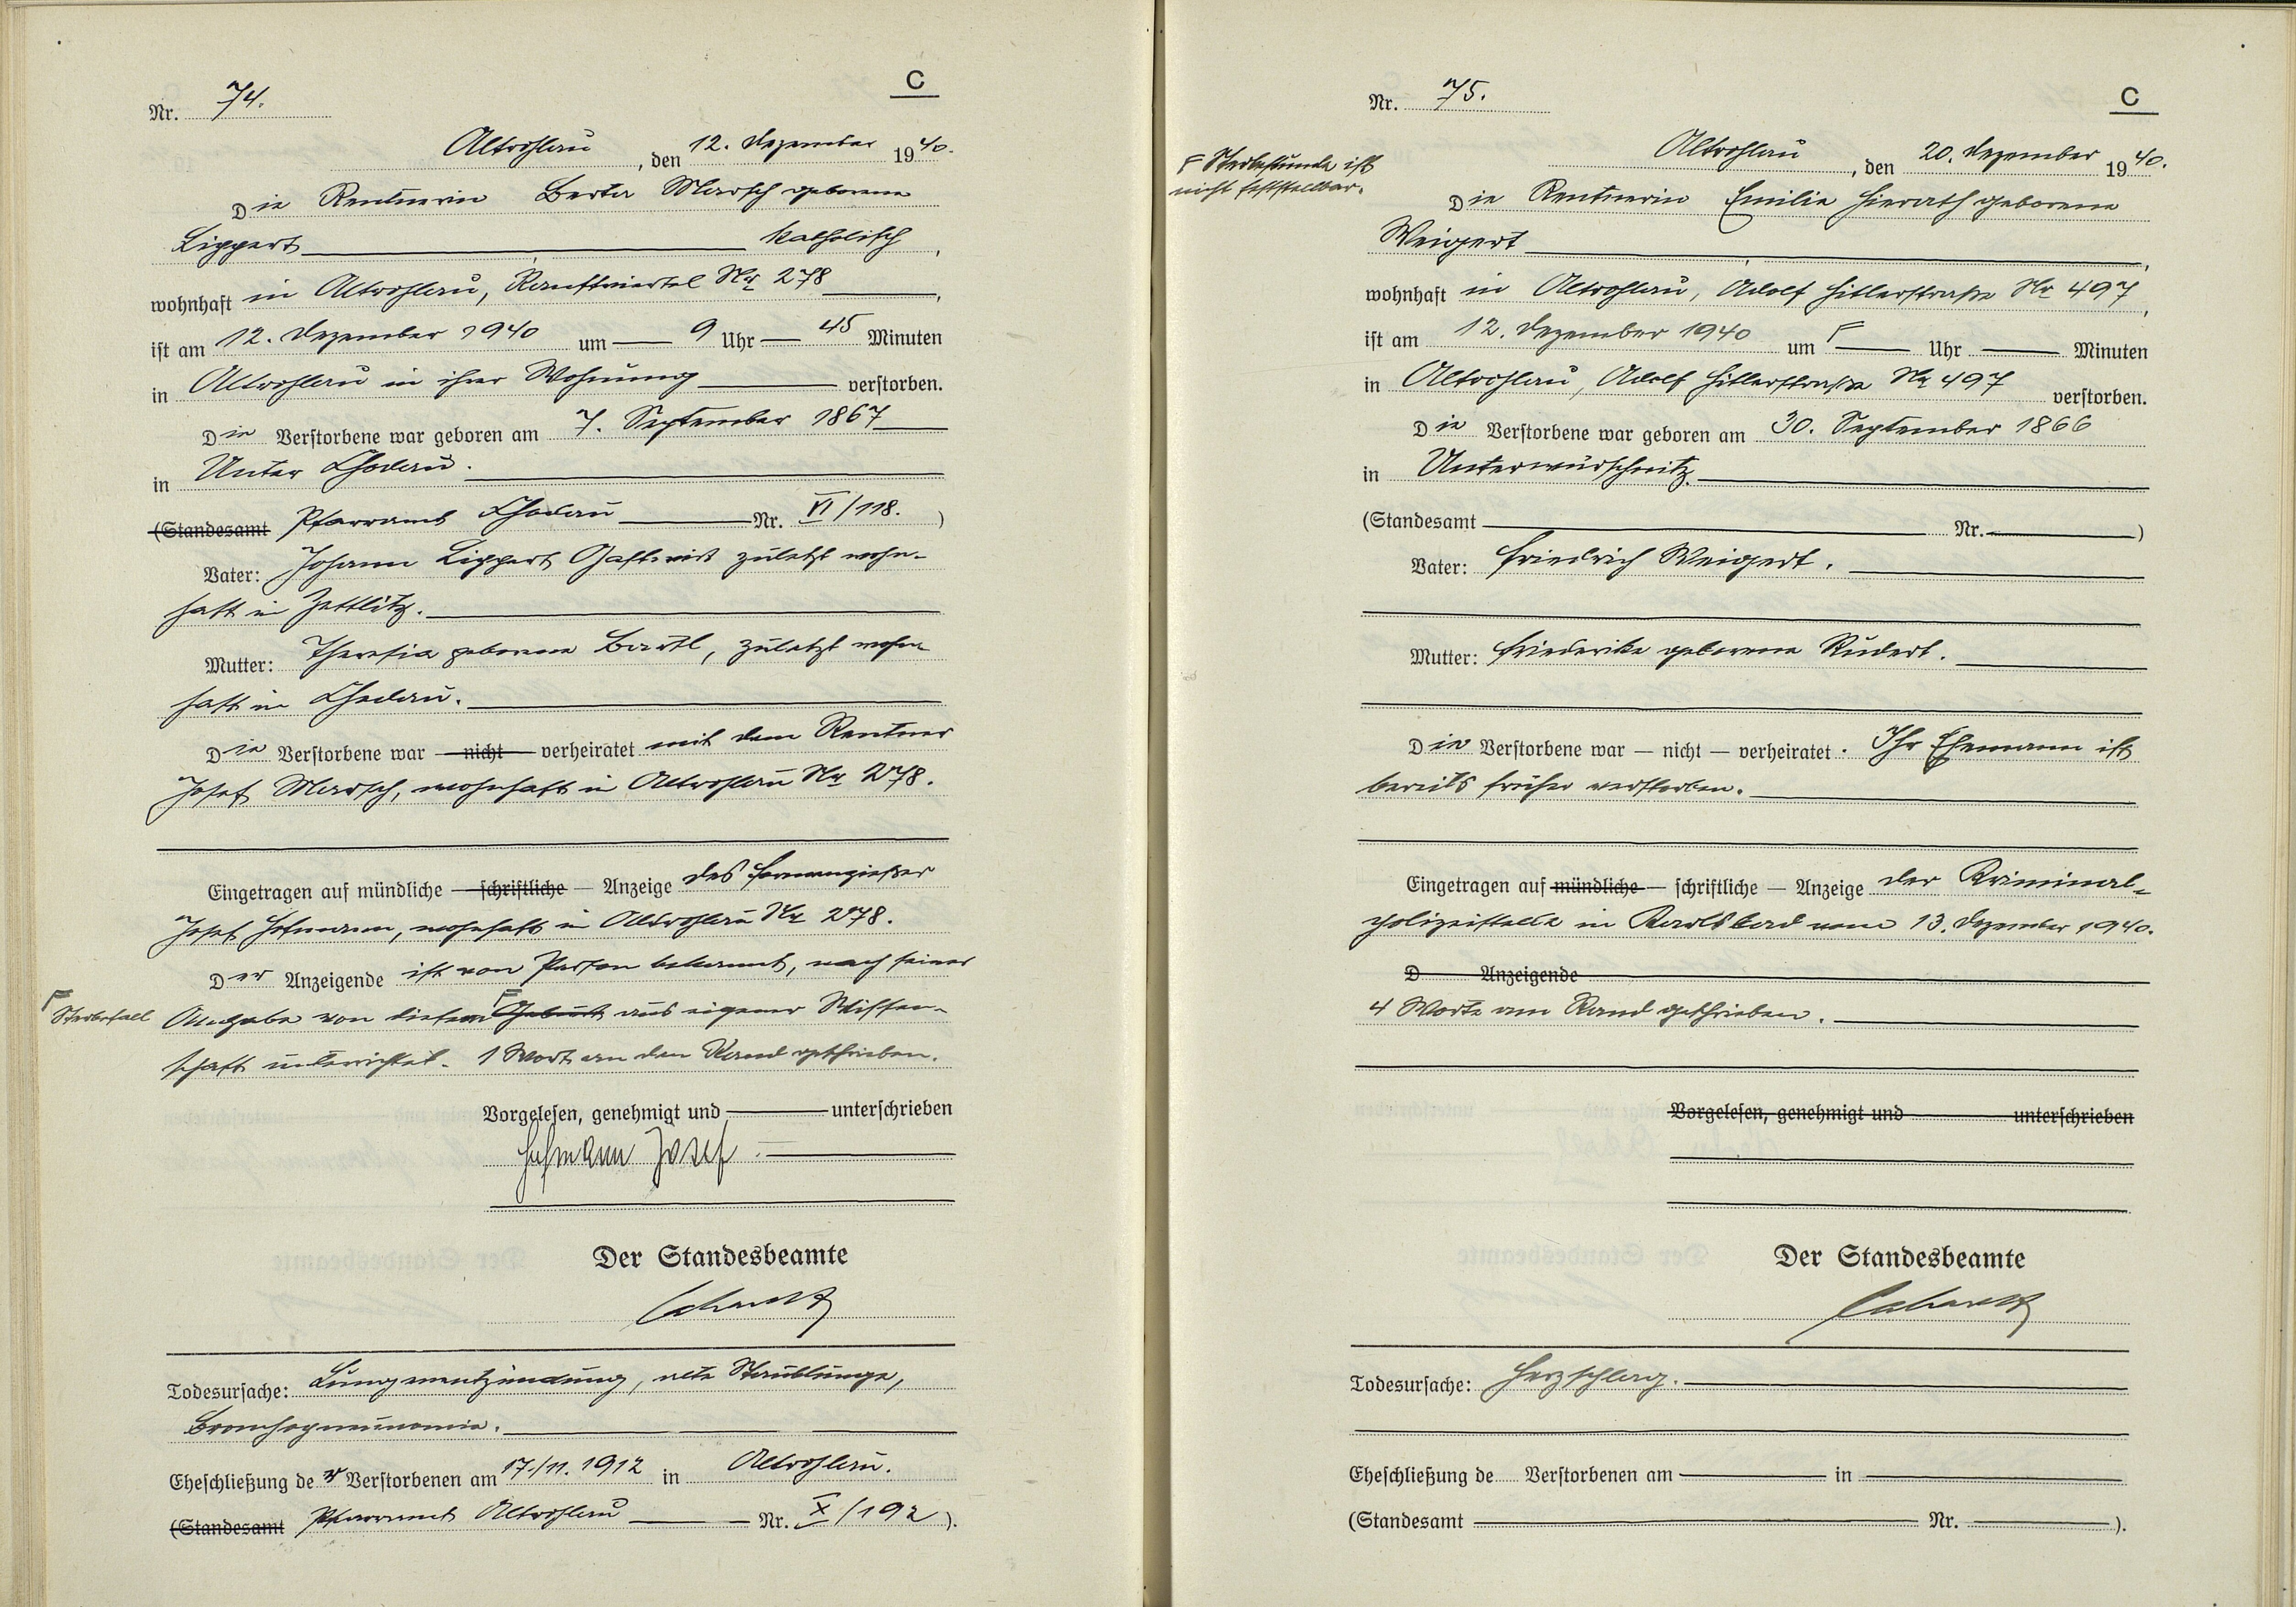 C
Nr. 74.
Altrohlau, den 12. Dezember 1940.
Die Rentnerin Berta Marsch geborene
Lippert katholisch,
wohnhaft in Altrohlau, Ranftviertel Nr 278,
ist am 12. Dezember 1940 um 9 Uhr 45 Minuten
in Altrohlau in ihrer Wohnung verstorben.
Die Verstorbene war geboren am 7. September 1867
in Unter Chodau.
(Standesamt Pfarramt Chodau Nr. VI/118.)
Vater: Johann Lippert Gastwirt zuletzt wohn-
haft in Zettlitz.
Mutter: Theresia geborene Bartl, zuletzt wohn
haft in Chodau.
Die Verstorbene war — nicht — verheiratet mit dem Rentner
Josef Marsch, wohnhaft in Altrohlau Nr 278.
Eingetragen auf mündliche — schriftliche — Anzeige des Formengießer
Josef Hofmann, wohnhaft in Altrohlau Nr 278.
Der Anzeigende ist von Person bekannt, nach seiner
Sterbefall
Angabe von diesem Geburt aus eigener Wissen-
schaft unterrichtet. 1 Wort an den Rand geschrieben.
Vorgelesen, genehmigt und unterschrieben
Hofmann Josef.
Der Standesbeamte
Todesursache: Lungenentzündung, alte Staublunge,
Bronchopneumonie.
Eheschließung der Verstorbenen am 17./11. 1912 in Altrohlau.
(Standesamt Pfarramt Altrohlau Nr. X/192).
C
Nr. 75.
Altrohlau, den 20. Dezember 1940.
Sterbestunde ist
nicht feststellbar.
Die Rentnerin Emilie Hierath geborene
Weigert,
wohnhaft in Altrohlau, Adolf Hitlerstraße Nr 497,
ist am 12. Dezember 1940 um Uhr Minuten
in Altrohlau, Adolf Hitlerstraße Nr 497 verstorben.
Die Verstorbene war geboren am 30. September 1866
in Unterwürschnitz.
(Standesamt Nr. )
Vater: Friedrich Weigert.
Mutter: Friederike geborene Rudert.
Die Verstorbene war — nicht — verheiratet. Ihr Ehemann ist
bereits früher verstorben.
Eingetragen auf mündliche — schriftliche — Anzeige der Kriminal-
polizeistelle in Karlsbad vom 13. Dezember 1940.
D Anzeigende
4 Worte am Rand geschrieben.
Vorgelesen, genehmigt und unterschrieben
Der Standesbeamte
Todesursache: Herzschlag.
Eheschließung de Verstorbenen am in
(Standesamt Nr. ).